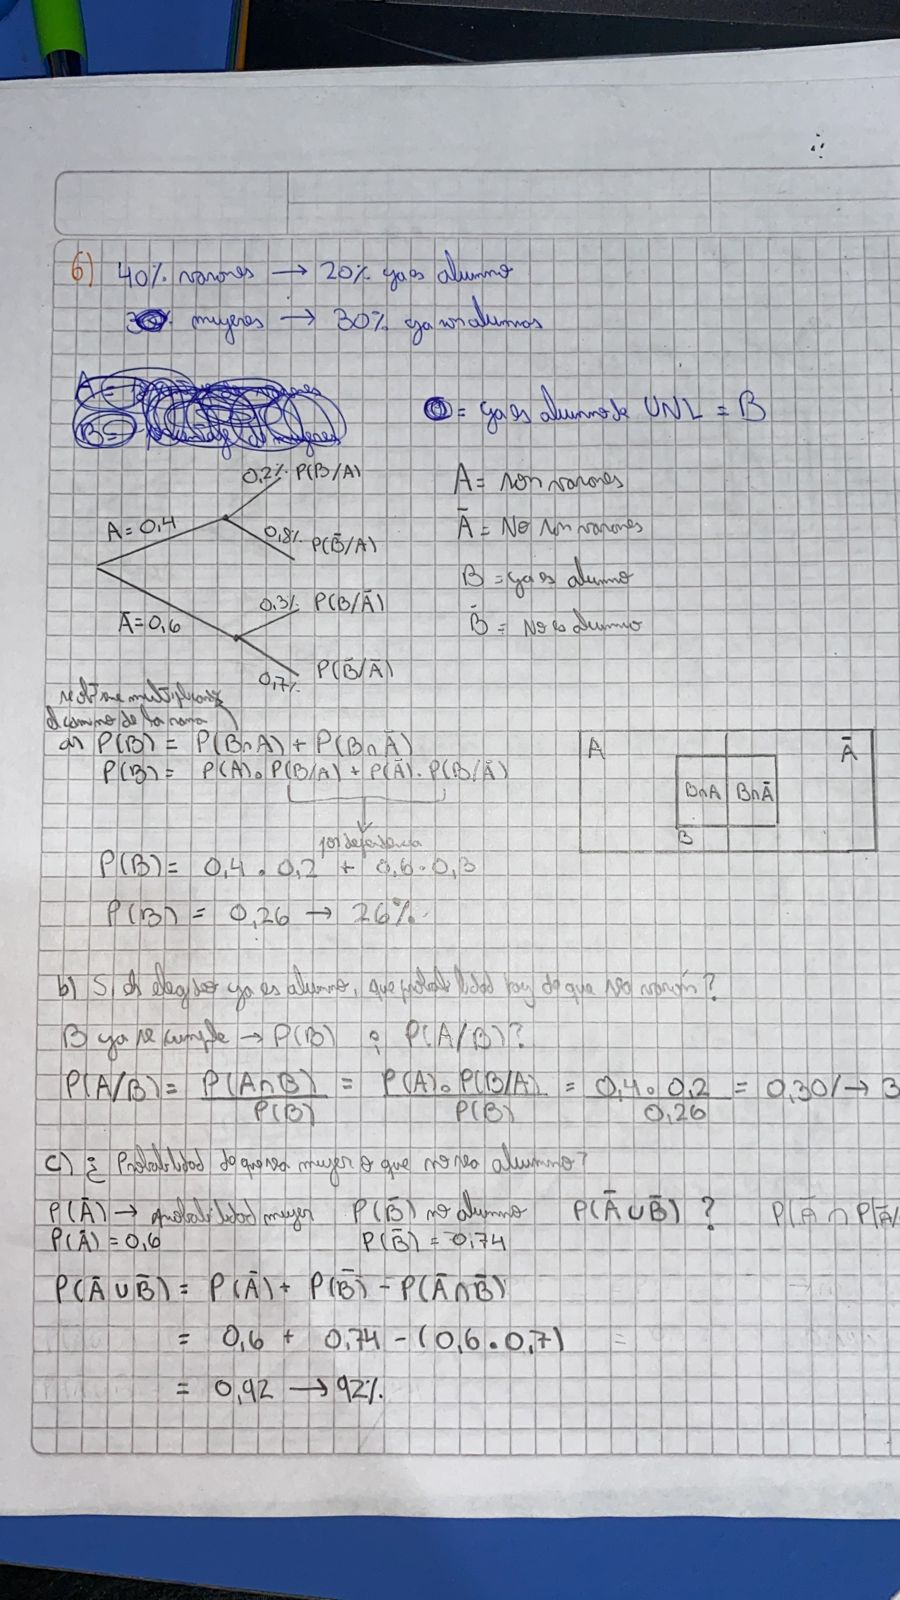 6) 40% varones → 20% ya es alumno
mujeres → 30% ya son alumnos
= ya es alumno de UNL = B
0,2% P(B/A)
A = 0,4
0,8% P(B̄/A)
0,3% P(B/Ā)
Ā = 0,6
0,7% P(B̄/Ā)
A = son varones
Ā = No son varones
B = ya es alumno
B̄ = No es alumno
multiplicando
el camino de la rama
a) P(B) = P(B∩A) + P(B∩Ā)
P(B) = P(A) . P(B/A) + P(Ā) . P(B/Ā)
por dependencia
A Ā
B∩A B∩Ā
B
P(B) = 0,4 . 0,2 + 0,6 . 0,3
P(B) = 0,26 → 26%
b) Si el elegido ya es alumno, que probabilidad hay de que sea varón?
B ya se cumple → P(B) ¿ P(A/B)?
P(A/B) = P(A∩B) / P(B) = P(A) . P(B/A) / P(B) = 0,4 . 0,2 / 0,26 = 0,30 → 3
c) ¿ Probabilidad de que sea mujer o que no sea alumno?
P(Ā) → probabilidad mujer P(B̄) no alumno P(Ā∪B̄) ? P(Ā ∩ P(Ā/
P(Ā) = 0,6 P(B̄) = 0,74
P(Ā∪B̄) = P(Ā) + P(B̄) - P(Ā∩B̄)
= 0,6 + 0,74 - (0,6 . 0,7) =
= 0,92 → 92%